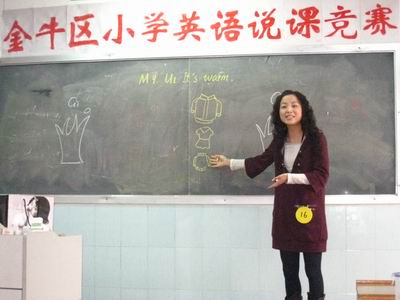 金牛区小学英语说课竞赛
M9. U2 It's warm.
G1
G
16